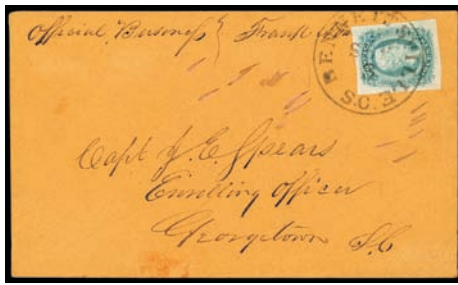 Official Business } Frank
BENNETTSVILLE
S.C.
Capt J. E. Spears
Enrolling Officer
Georgetown S.C